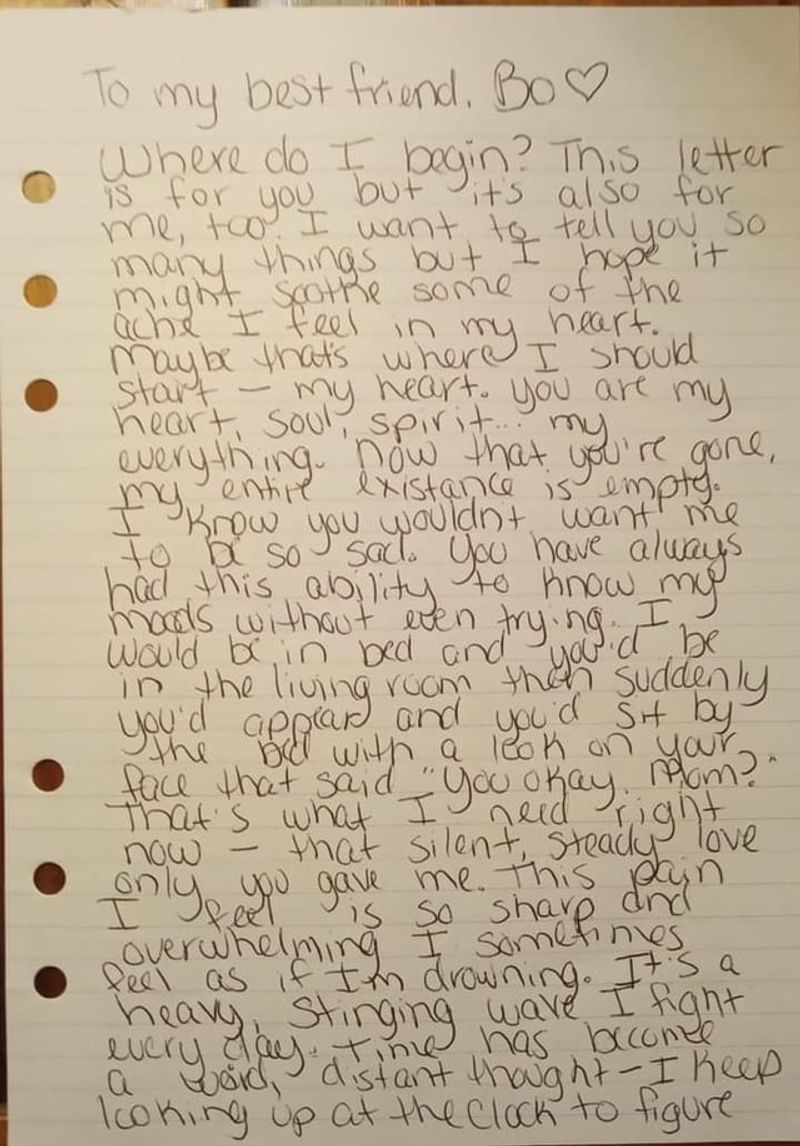 To my best friend, Bo♡
Where do I begin? This letter
is for you but it's also for
me, too. I want to tell you so
many things but I hope it
might soothe some of the
ache I feel in my heart.
Maybe that's where I should
start – my heart. you are my
heart, soul, spirit... my
everything. Now that you're gone,
my entire existance is empty.
I know you wouldn't want me
to be so sad. You have always
had this ability to know my
moods without even trying. I
would be in bed and you'd be
in the living room then suddenly
you'd appear and you'd sit by
the bed with a look on your
face that said "You okay, Mom?"
That's what I need right
now – that silent, steady love
only you gave me. This pain
I feel is so sharp and
overwhelming I sometimes
feel as if I'm drowning. It's a
heavy, stinging wave I fight
every day. Time has become
a weird, distant thought – I keep
looking up at the clock to figure